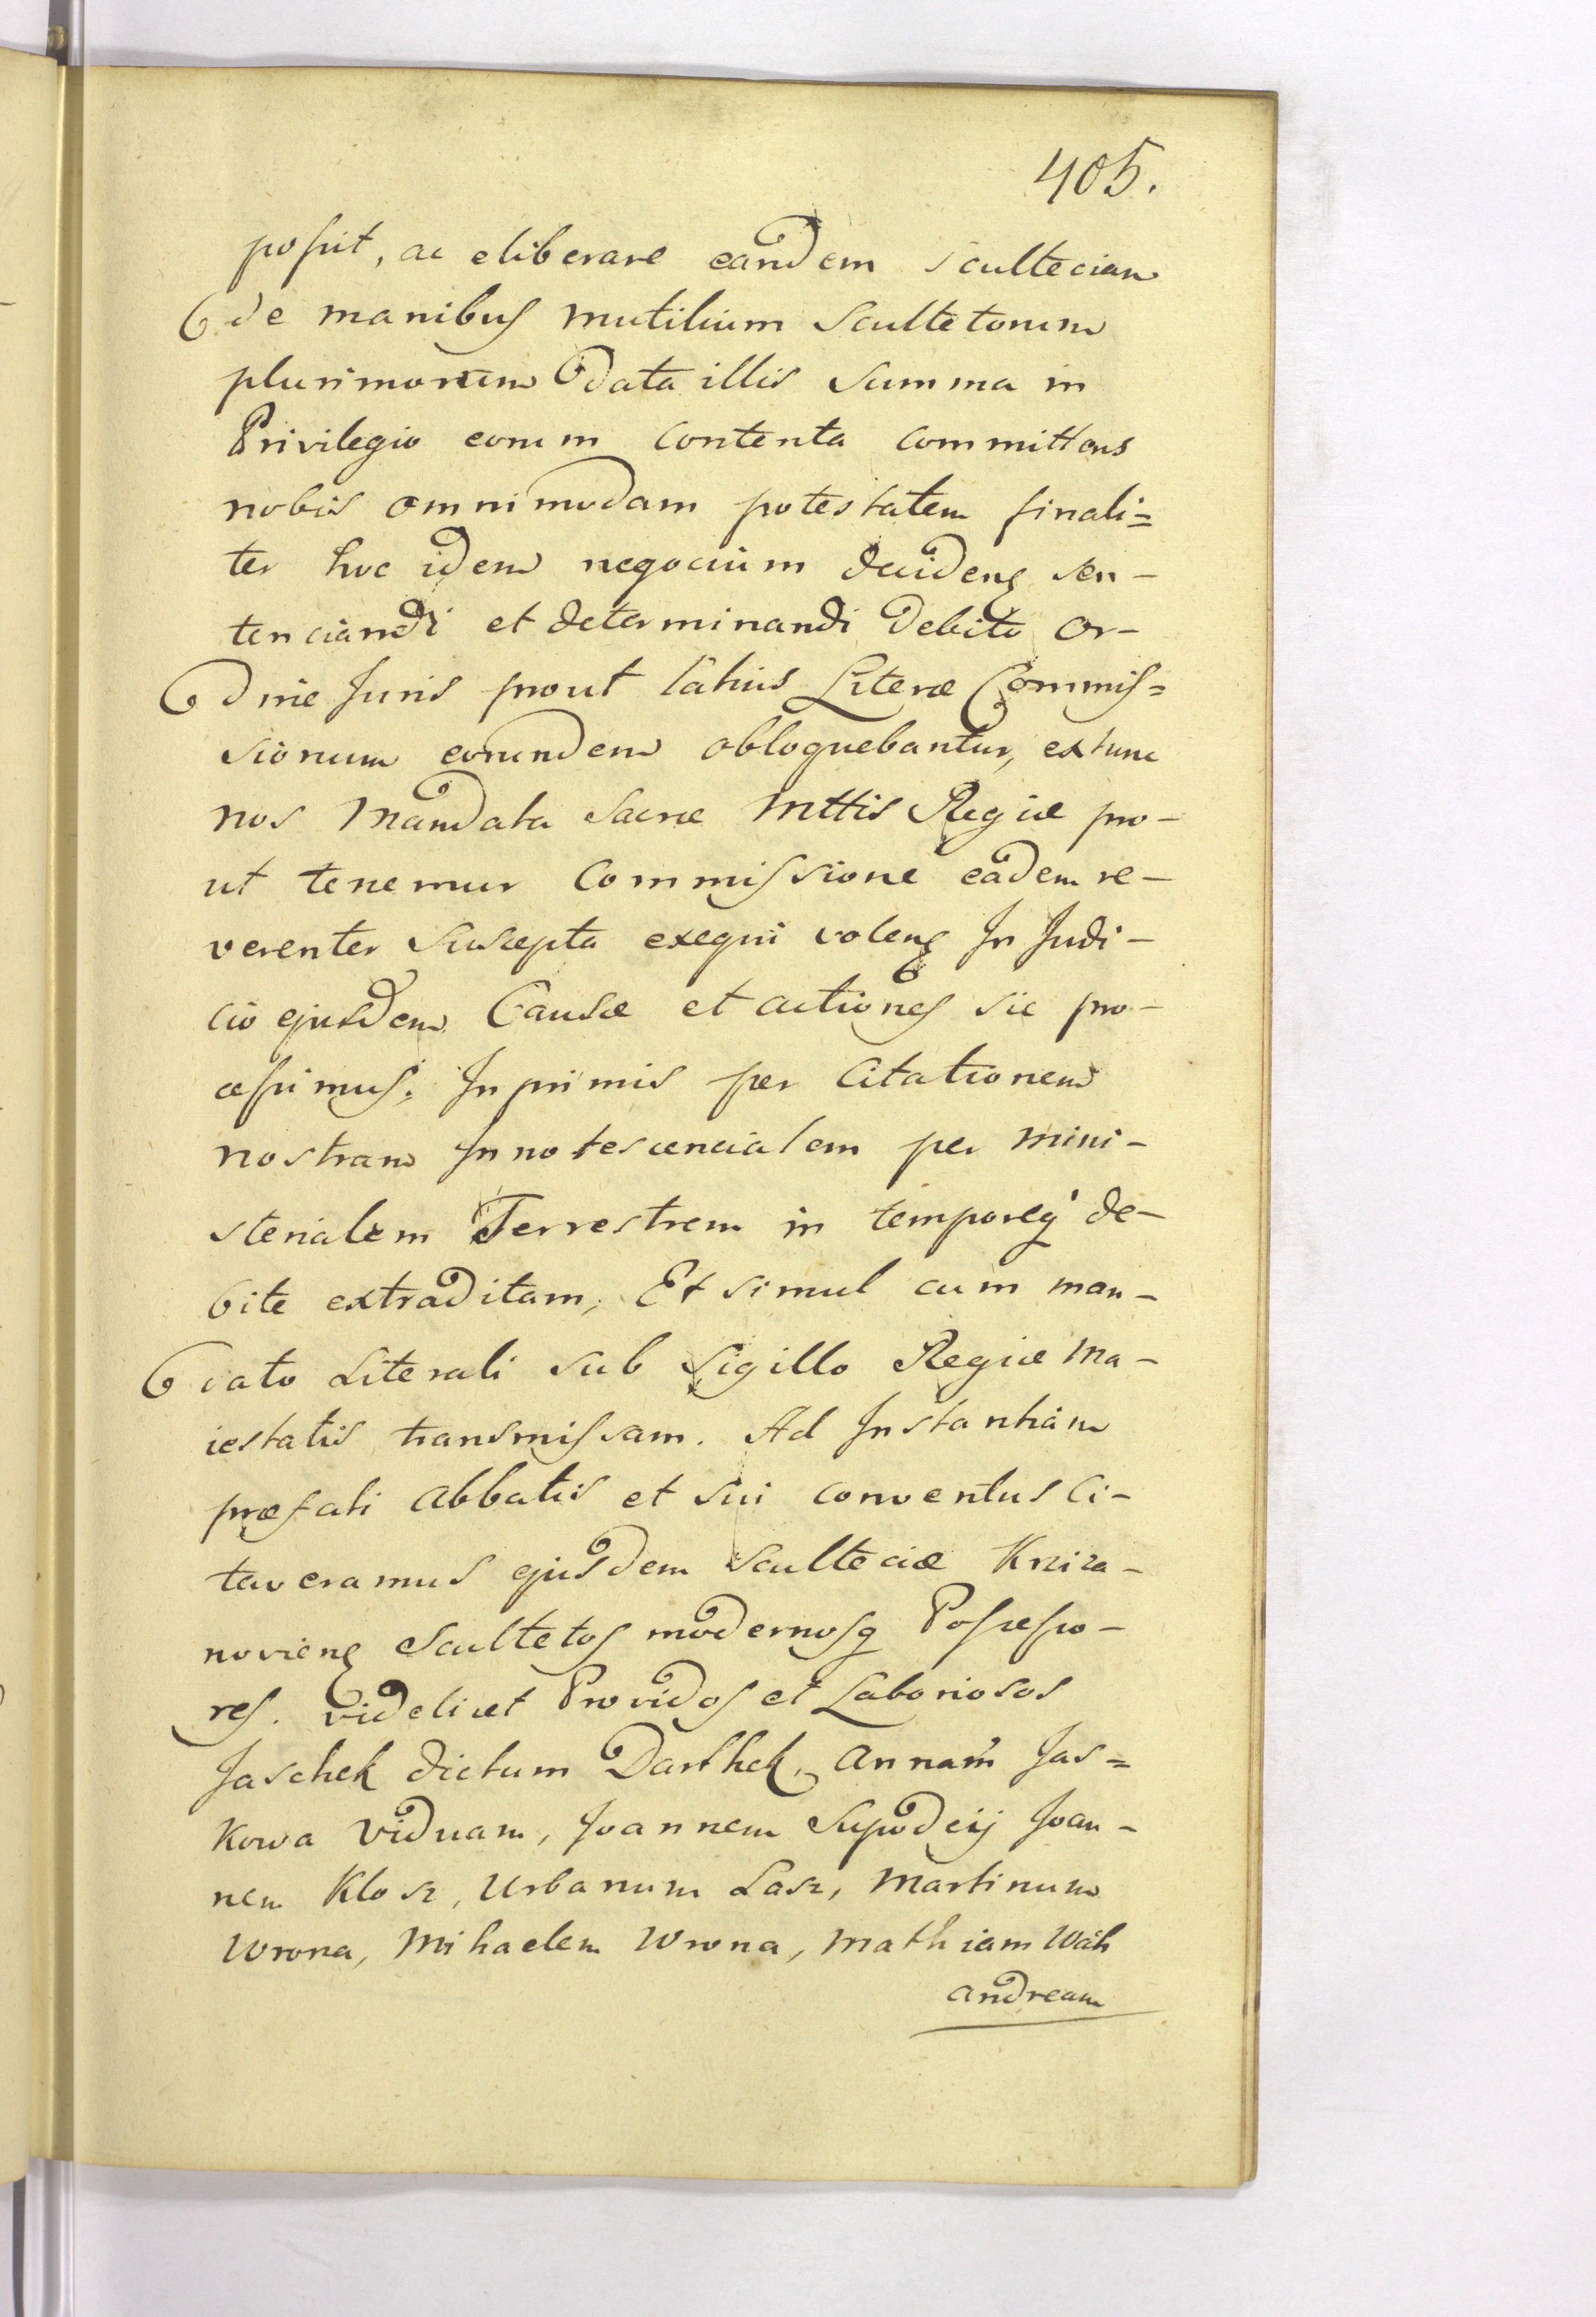 405.
poſsit, ac eliberare eandem Scultecian
de manibus Mutilium Scultetorum
plurimorum data illis Summa in
Privilegio eorum Contenta Committens
nobis omnimodam potestatem finali=
ter hoc idem negocium decidenꝭ sen-
tenciandi et determinandi debito or-
dine Juris prout latius Literæ Commiſ=
sionum eorundem obloquebantur, extunc
nos Mandata Sacræ Mttis Regiæ pro-
ut tenemur Commiſsione eadem re-
verenter Suscepta exequi volenꝭ In Judi-
cio ejusdem Causæ et actiones sic pro-
ceſsimus. In primis per Citationem
nostram Innotescencialem per Mini-
sterialem Terrestrem in tempore q' de-
bite extraditam, Et simul cum man-
dato Literali sub Sigillo Regiæ Ma-
iestatis transmiſsam. Ad Instantiam
præfati Abbatis et sui conventus Ci-
taveramus ejusdem Sculteciæ Kniza-
novienꝭ Scultetos modernosq Poſseſso-
res. Videlicet Providos et Laboriosos
Jaschek dictum Darthek, Annam Jas=
kowa Viduam, Joannem Supodeij Joan-
nem Klosz, Urbanum Lasz, Martinum
Wrona, Mihaelem Wrona, Mathiam Wah
Andream